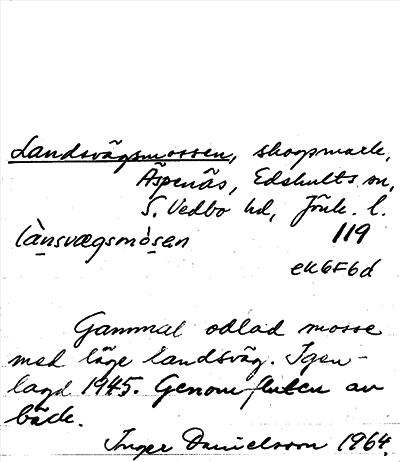 Landsvägsmossen, skogsmark,
Äspenäs, Edshults sn,
S. Vedbo hd, Jönk. l.
là̱nsvægsmò̱sen 119
ek6F6d
Gammal odlad mosse
med läge landsväg. Igen-
lagd 1945. Genomfluten av
bäck.
Inger Danielsson 1964.